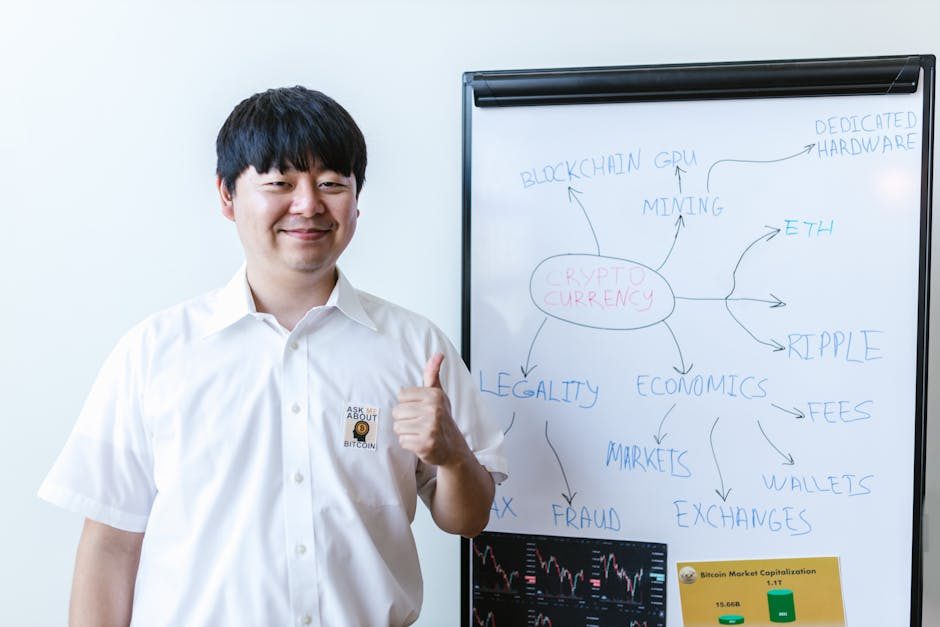 ASK ME
ABOUT
BITCOIN
DEDICATED
HARDWARE
BLOCKCHAIN GPU
MINING
ETH
CRYPTO
CURRENCY
RIPPLE
LEGALITY
ECONOMICS
FEES
MARKETS
WALLETS
AX
FRAUD
EXCHANGES
Bitcoin Market Capitalization
1.1T
15.66B